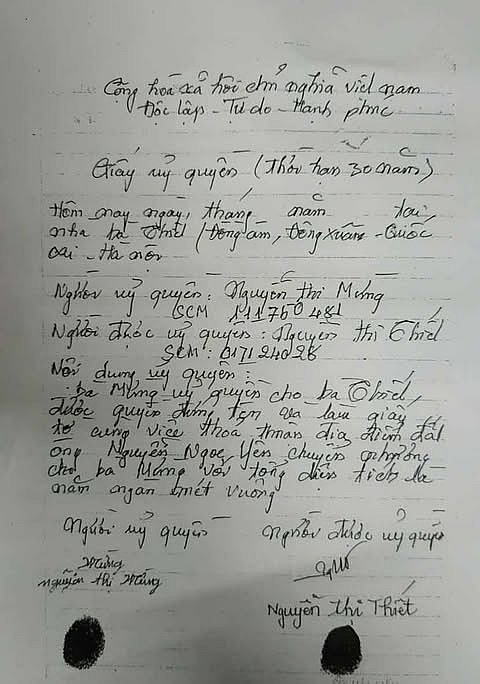 Cộng hoà xã hội chủ nghĩa việt nam
Độc lập - Tự do - Hạnh phúc
Giấy uỷ quyền (thời hạn 30 năm)
Hôm nay ngày, tháng năm tại
nhà bà Thiết (Đồng âm, Đông xuân - Quốc
oai - Hà nội
Người uỷ quyền : Nguyễn thị Mừng
SCM 111750481
Người được uỷ quyền : Nguyễn thị Thiết
SCM : 017124028
Nội dung uỷ quyền :
bà Mừng uỷ quyền cho bà Thiết,
được quyền đứng tên và làm giấy
tờ cùng việc thoả thuận địa điểm đất
ông Nguyễn Ngọc Yên chuyển nhượng
cho bà Mừng với tổng diện tích là
năm ngàn mét vuông
Người uỷ quyền Người được uỷ quyền
Mừng
nguyễn thị Mừng
Nguyễn Thị Thiết